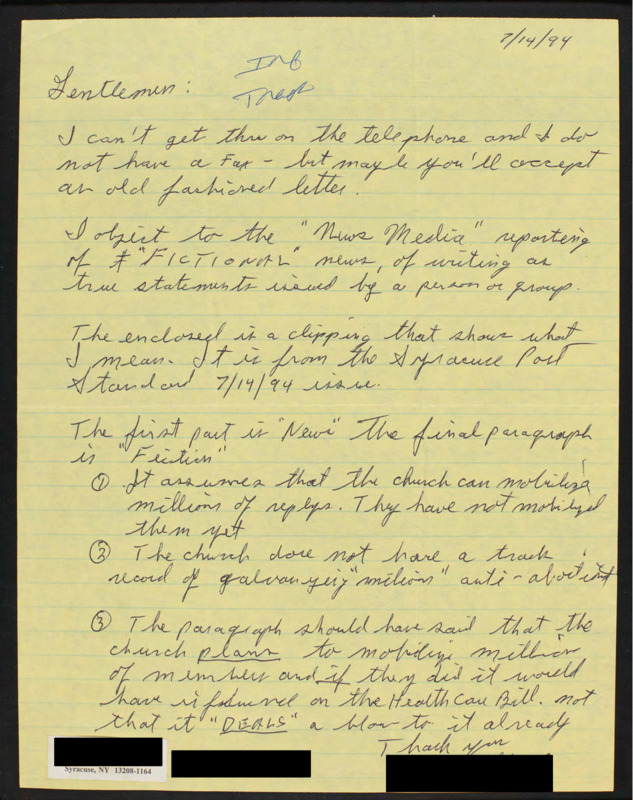 7/14/94
Gentlemen:
I can't get thru on the telephone and I do
not have a Fax - but maybe you'll accept
an old fashioned letter.
I object to the "News Media" reporting
of "FICTIONAL" news, of writing as
true statements issued by a person or group.
The enclosed is a clipping that shows what
I mean. It is from the Syracuse Post
Standard 7/14/94 issue.
The first part is "News" The final paragraph
is "Fiction"
① It assumes that the church can mobilize
millions of replys. They have not mobilized
them yet
② The church does not have a track
record of "millions" anti-abortionist
③ The paragraph should have said that the
church plans to mobilize million
of members and if they did it would
have on the Health Care Bill. not
that it "DEALS" a blow to it already
Thank you
Syracuse, NY 13208-1164